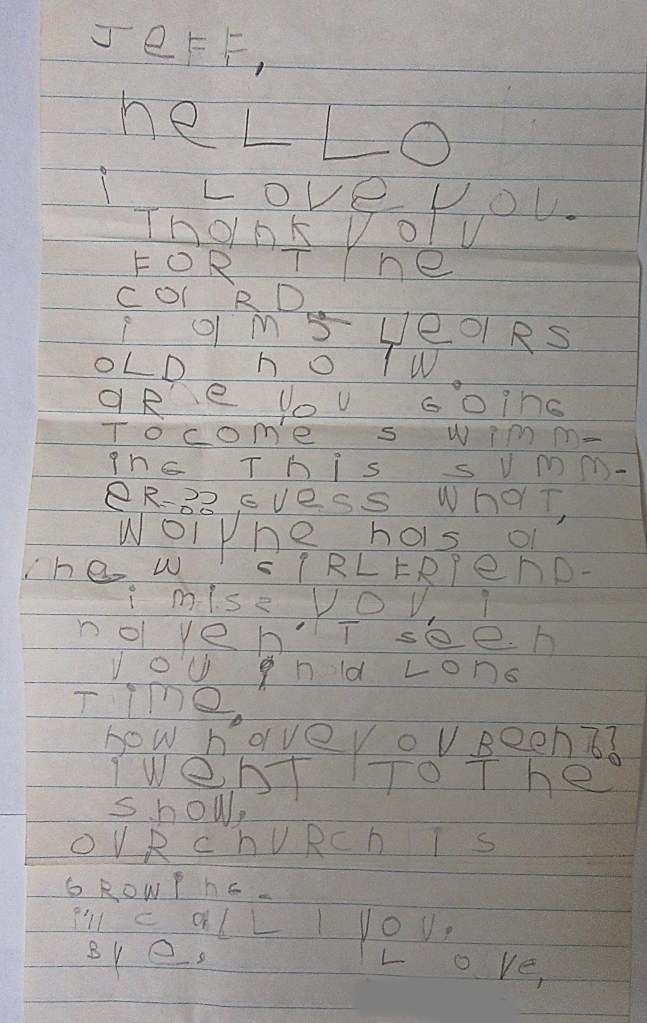 Jeff,
heLLO
i Love you.
Thank you
FOR The
caRD.
i am 5 yeaRs
OLD now
aRe you going
To come swimm-
ing This summ-
eR-?? guess whaT,
wayne has a
new giRLFRienD-
i miss you, i
haven'T seen
you in a Long
Time.
how have you Been??
i wenT To The
snow.
ouR chuRch is
GRowing.
i'll caLL you.
Bye. Love,